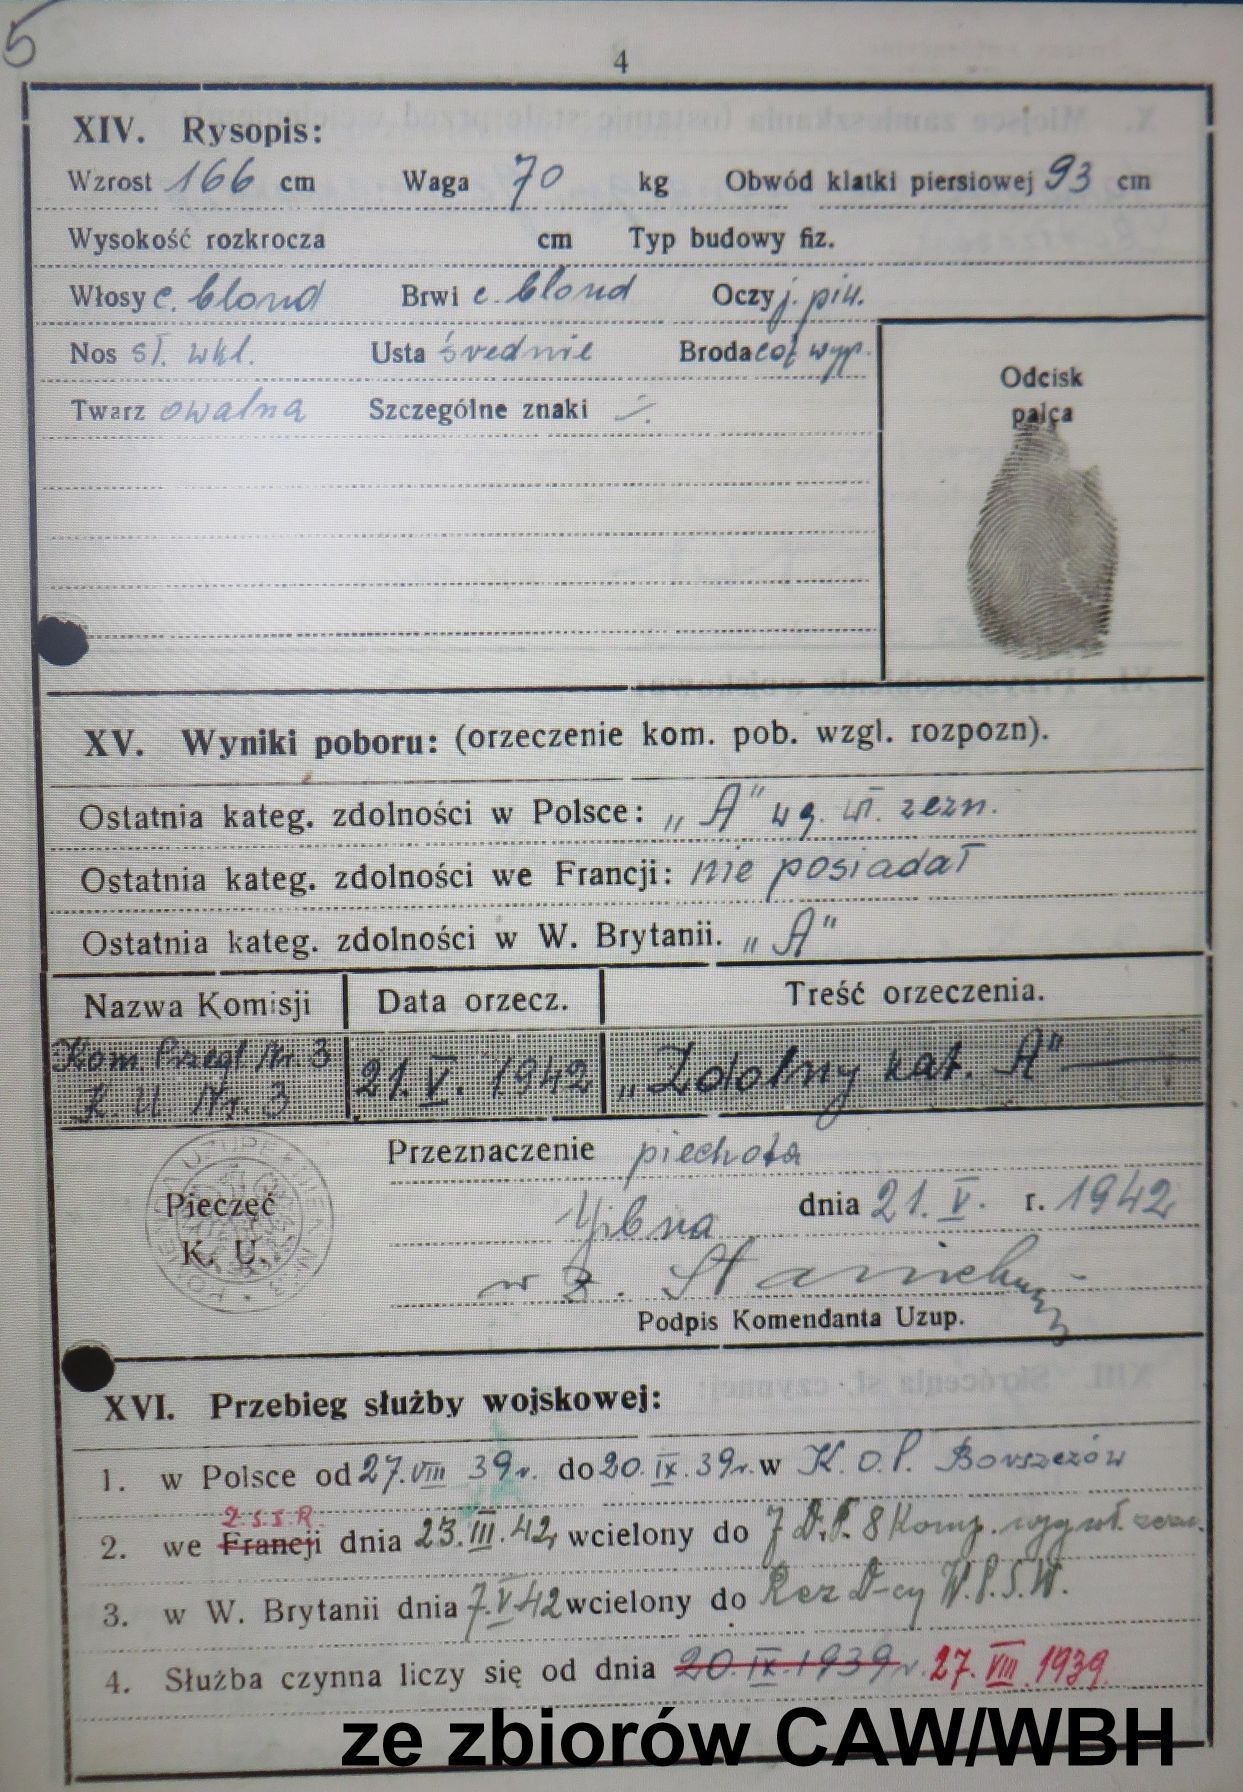 5
4
XIV. Rysopis:
Wzrost 166 cm Waga 70 kg Obwód klatki piersiowej 93 cm
Wysokość rozkrocza cm Typ budowy fiz.
Włosy c. blond Brwi c. blond Oczy j. piw.
Nos śr. wkl. Usta średnie Broda wyp.
Twarz owalna Szczególne znaki
Odcisk
palca
XV. Wyniki poboru: (orzeczenie kom. pob. wzgl. rozpozn).
Ostatnia kateg. zdolności w Polsce: „A" wg. wł. zezn.
Ostatnia kateg. zdolności we Francji: nie posiadał
Ostatnia kateg. zdolności w W. Brytanii. „A"
Nazwa Komisji Data orzecz. Treść orzeczenia.
Kom. Przegl. Nr. 3 21.V.1942 „Zdolny kat. A"
K. U. Nr. 3
Przeznaczenie piechota
Pieczęć
K. U.
Yibna dnia 21.V. r. 1942
w z.
Podpis Komendanta Uzup.
XVI. Przebieg służby wojskowej:
1. w Polsce od 27.VIII 39r. do 20.IX.39r. w K.O.P. Borszczów
Z.S.S.R.
2. we Francji dnia 23.III.42 wcielony do 7 D.P. 8 Komp. wg wł. zezn.
3. w W. Brytanii dnia 7.V.42 wcielony do Rez D-cy W.P.S.W.
4. Służba czynna liczy się od dnia 20.IX.1939r. 27.VIII.1939.
ze zbiorów CAW/WBH